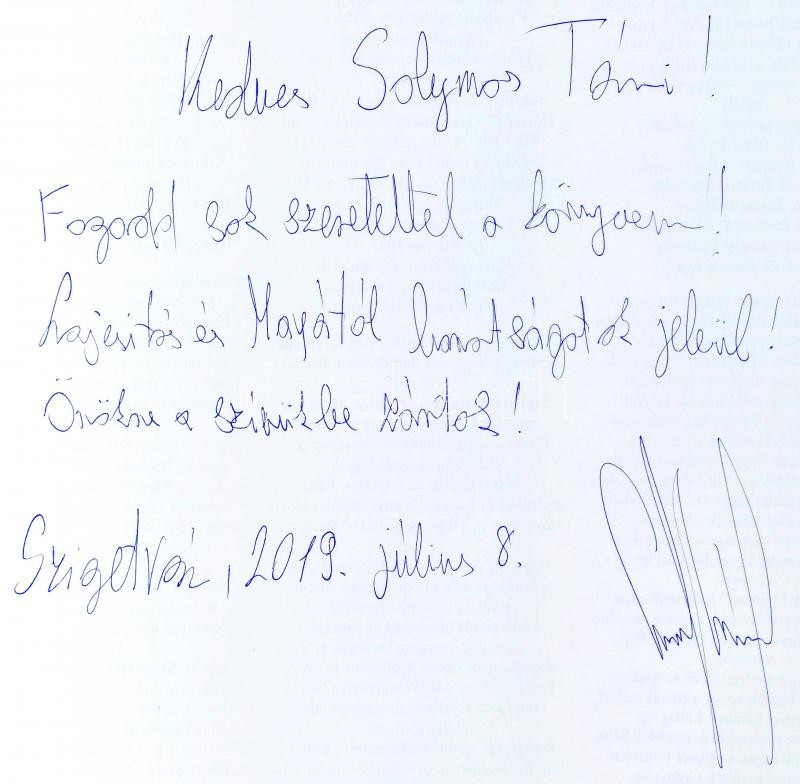 Kedves Solymos Tími!
Fogadd sok szeretettel a könyvem!!
Lajesitós és Mayától barátságotok jeléül!
Örökre a szívükbe zártok!
Szigetvár, 2019. július 8.